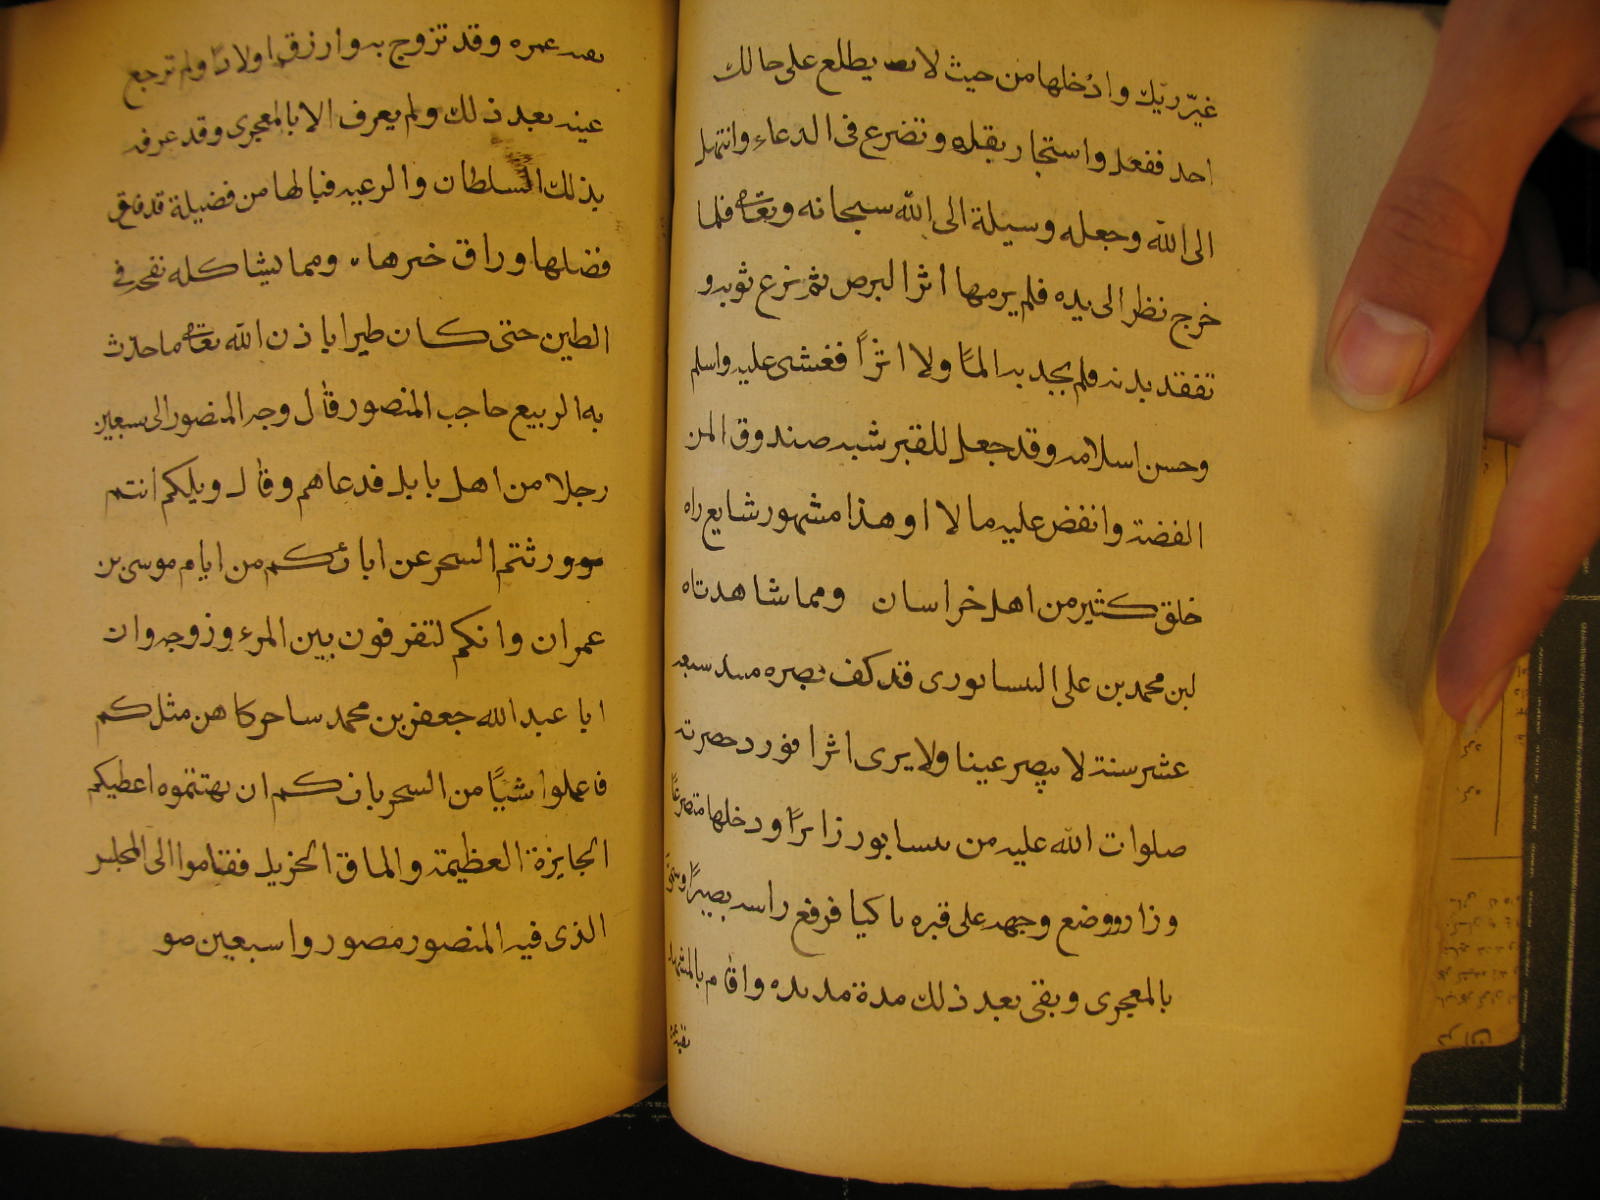 غيّر ريّك وادخلها من حيث لا يطلع على حالك
احد ففعل واستجار بقبله وتضرع فى الدعاء وابتهل
الى الله وجعله وسيلة الى الله سبحانه وتعالى فلما
خرج نظر الى يده فلم ير مها اثر البرص ثم نزع ثوبه و
تفقد بدنه فلم يجد به المًا ولا اثرًا فغشى عليه واسلم
وحسن اسلامه وقد جعل للقبر شبه صندوق المن
الفضة وانفض عليه مالا اوهذا مشهور شايع راه
خلق كثير من اهل خراسان ومما شاهدناه
لبن محمد بن على النيسابورى قد كف بصره منذ سبعه
عشر سنة لا يبصر عينا ولا يرى اثرا فورد حضرته
صلوات الله عليه من نيسابور زايرًا ودخلها متضرعًا
وزار ووضع وجهه على قبره باكيا فرفع راسه بصيرًا وسمّى
بالمعجزى وبقى بعد ذلك مدة مديده واقام بالمشهد
بقية عمره
بقيه عمره وقد تزوج به وارزق اولادًا ولم ترجع
عينه بعد ذلك ولم يعرف الا بالمعجزى وقد عرفه
بذلك السلطان والرعيه فيالها من فضيلة قد فاق
فضلها وراق خبرها ومما يشاكله نفخه فى
الطين حتى كان طيرا باذن الله تعالى ما حدث
به الربيع حاجب المنصور قال وجه المنصور الى سبعين
رجلا من اهل بابل فدعاهم وقال ويلكم انتم
ورثتم السحر عن ابائكم من ايام موسى بن
عمران وانكم لتفرفون بين المرء وزوجه وان
ابا عبد الله جعفر بن محمد ساحر كاهن مثلكم
فاعملوا شيًا من السحر بانكم ان بهتتموه اعطيكم
الجايزة العظيمة والماق الجزيل فقاموا الى المجلس
الذى فيه المنصور مصوروا سبعين صو